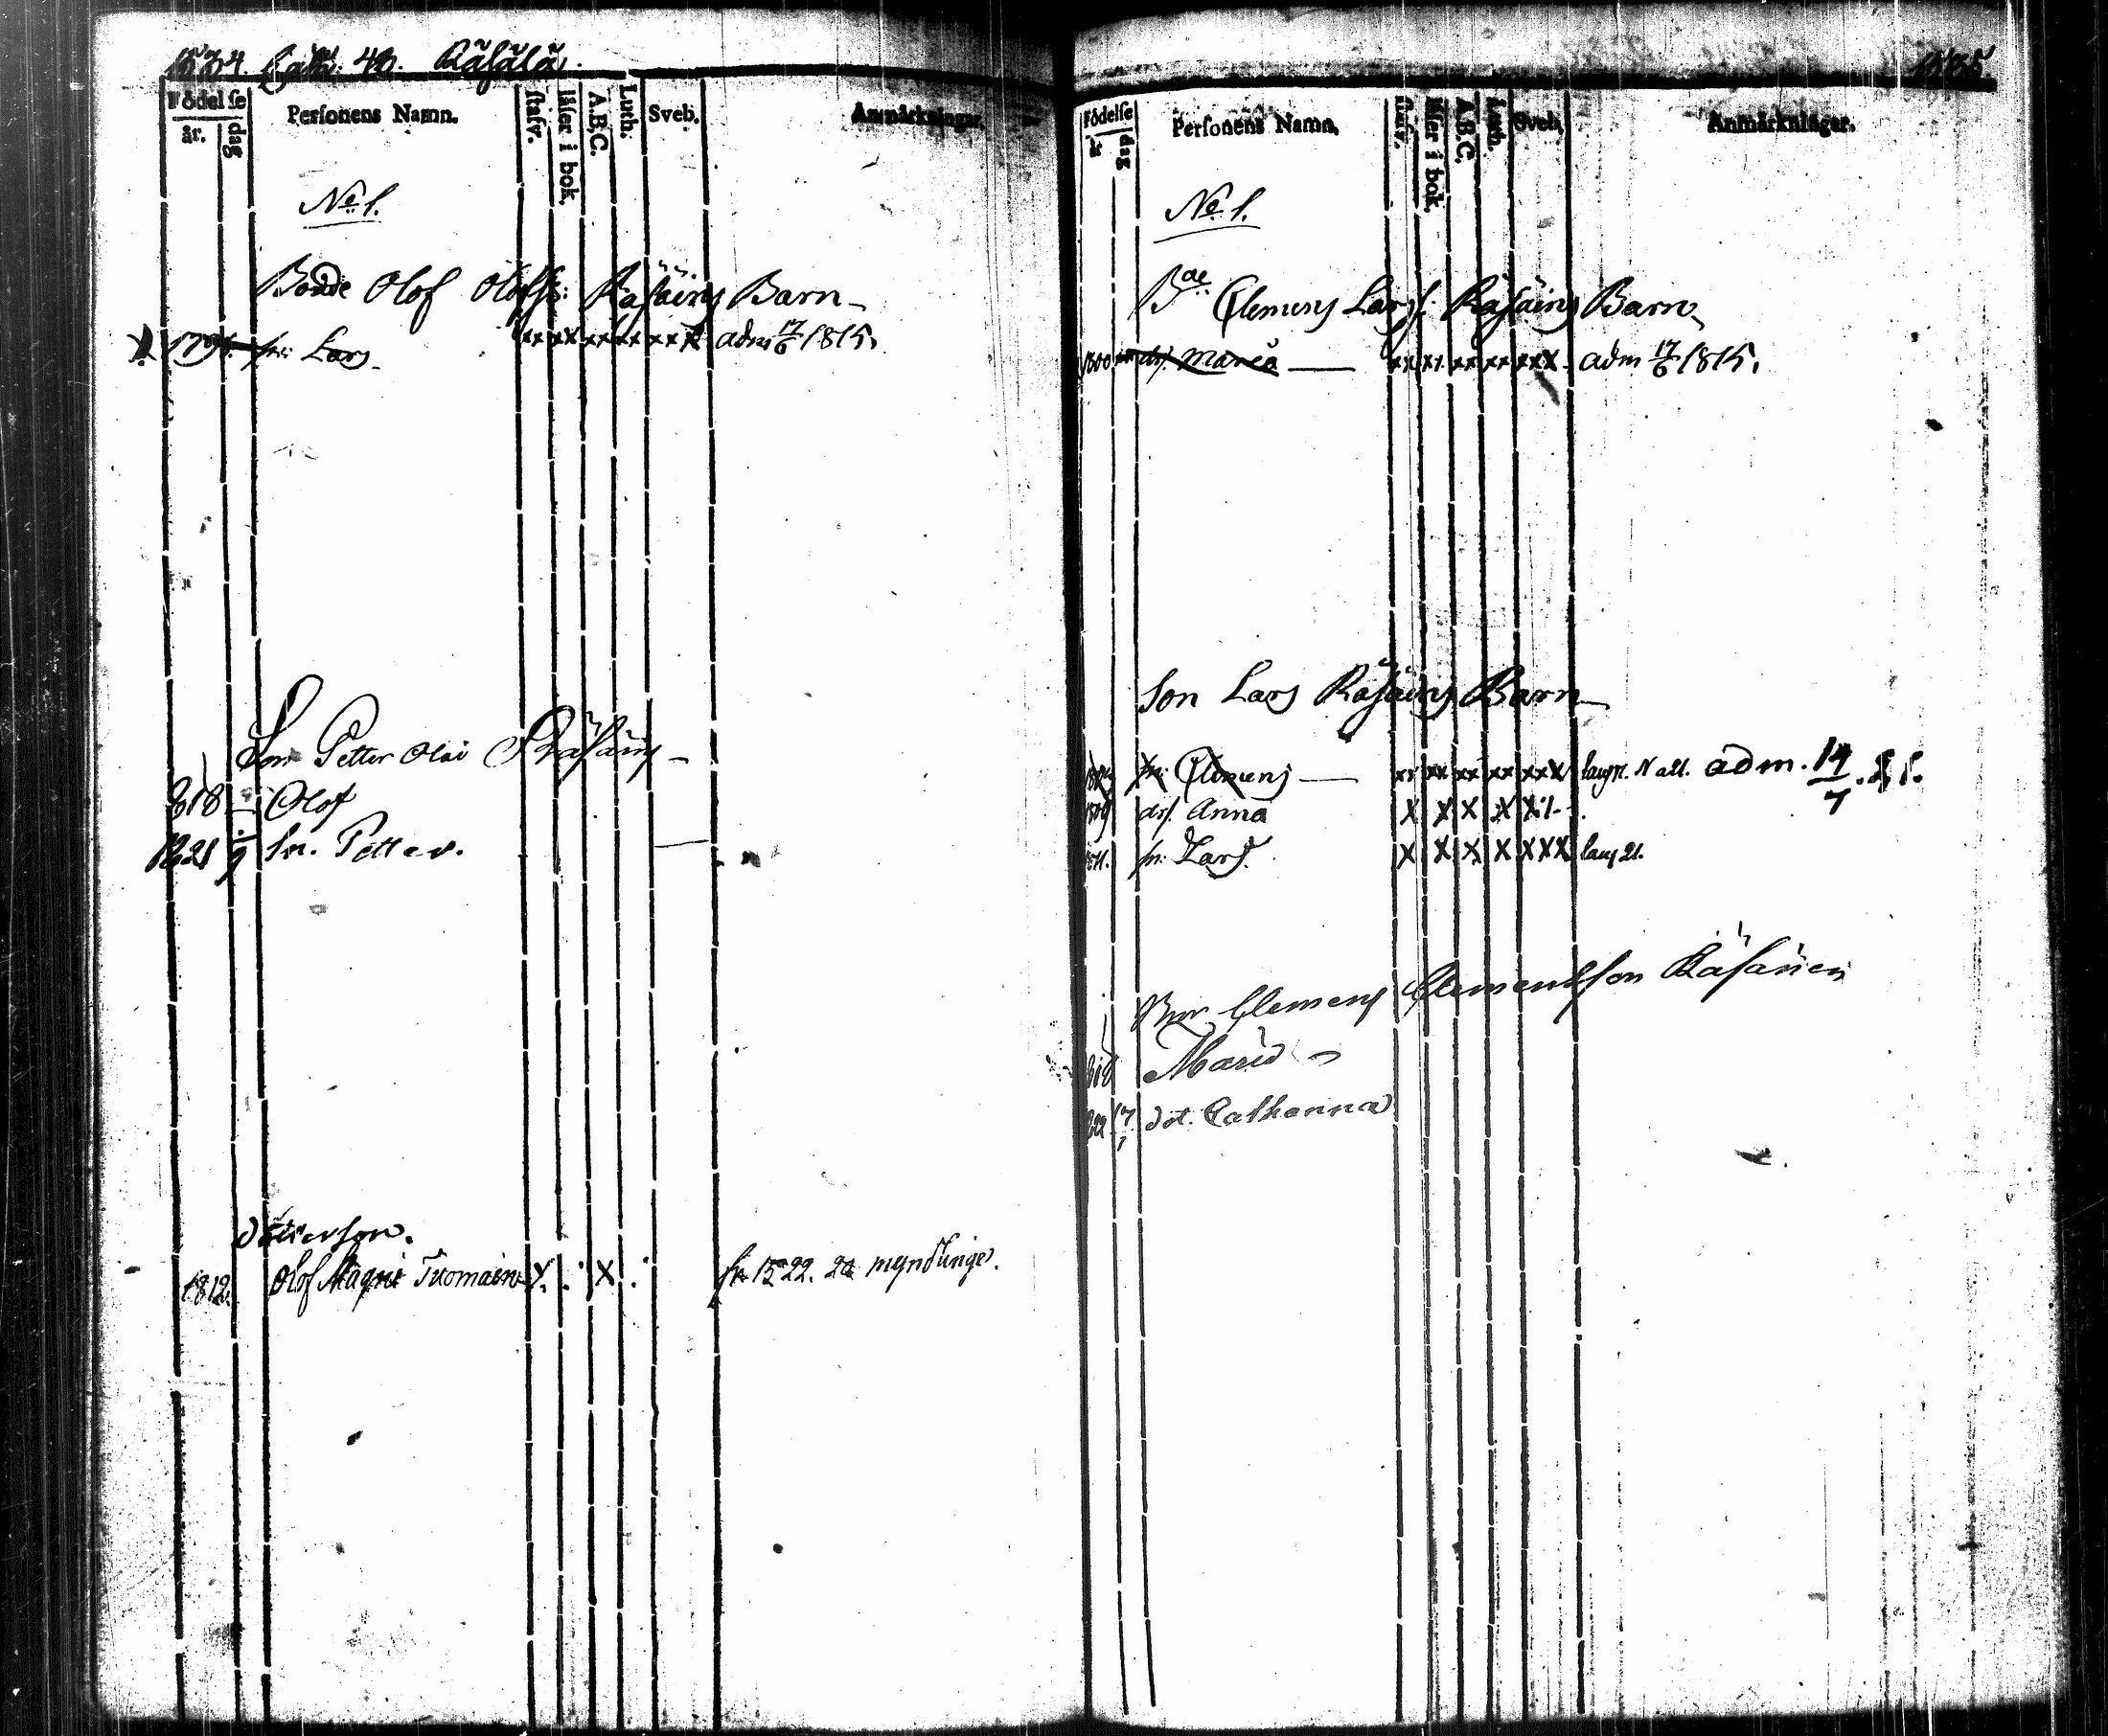 1534. Cath. 40. Räsälä.
Födelse
år. dag Personens Namn. stafv. läser i bok. A.B.C. Luth: Sveb. Anmärkningar.
No 1.
Bonde Olof Olofss: Räsäins Barn
1798. sn: Lars xx xx xx xx xxx adm 17/6 1815.
Son Petter Olai Räsäins
818 Olof
1821 sn. Petter.
dotterson.
1812. Olof Magni Tuomain x. . x . myndinge.
1535.
Födelse
år dag Personens Namn. stafv. läser i bok. A.B.C. Luth. Sveb. Anmärkningar.
No 1.
Bde Clemens Larss: Räsäins Barn
1800 dr. Maria xx xx xx xx xxx adm 17/6 1815.
Son Lars Räsäins Barn
sn: Clemens xx xx xx xx xxx adm. 14/7. 21.
1809 dr. Anna x x x x x
sn: Lars. x x x x xxx
Bror Clemens Clementsson Räsänen
818 Maria
822 17/1 dot. Catharina